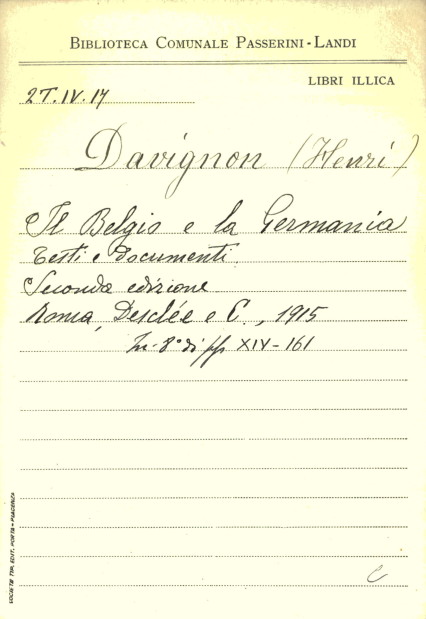 BIBLIOTECA COMUNALE PASSERINI-LANDI
LIBRI ILLICA
2T.IV.17
Davignon (Henri)
Il Belgio e la Germania
Testi e documenti
Seconda edizione
Roma, Desclée e C., 1915
In-8° di pp XIV-161
SOCIETÀ TIP. EDIT. PORTA - PIACENZA
C